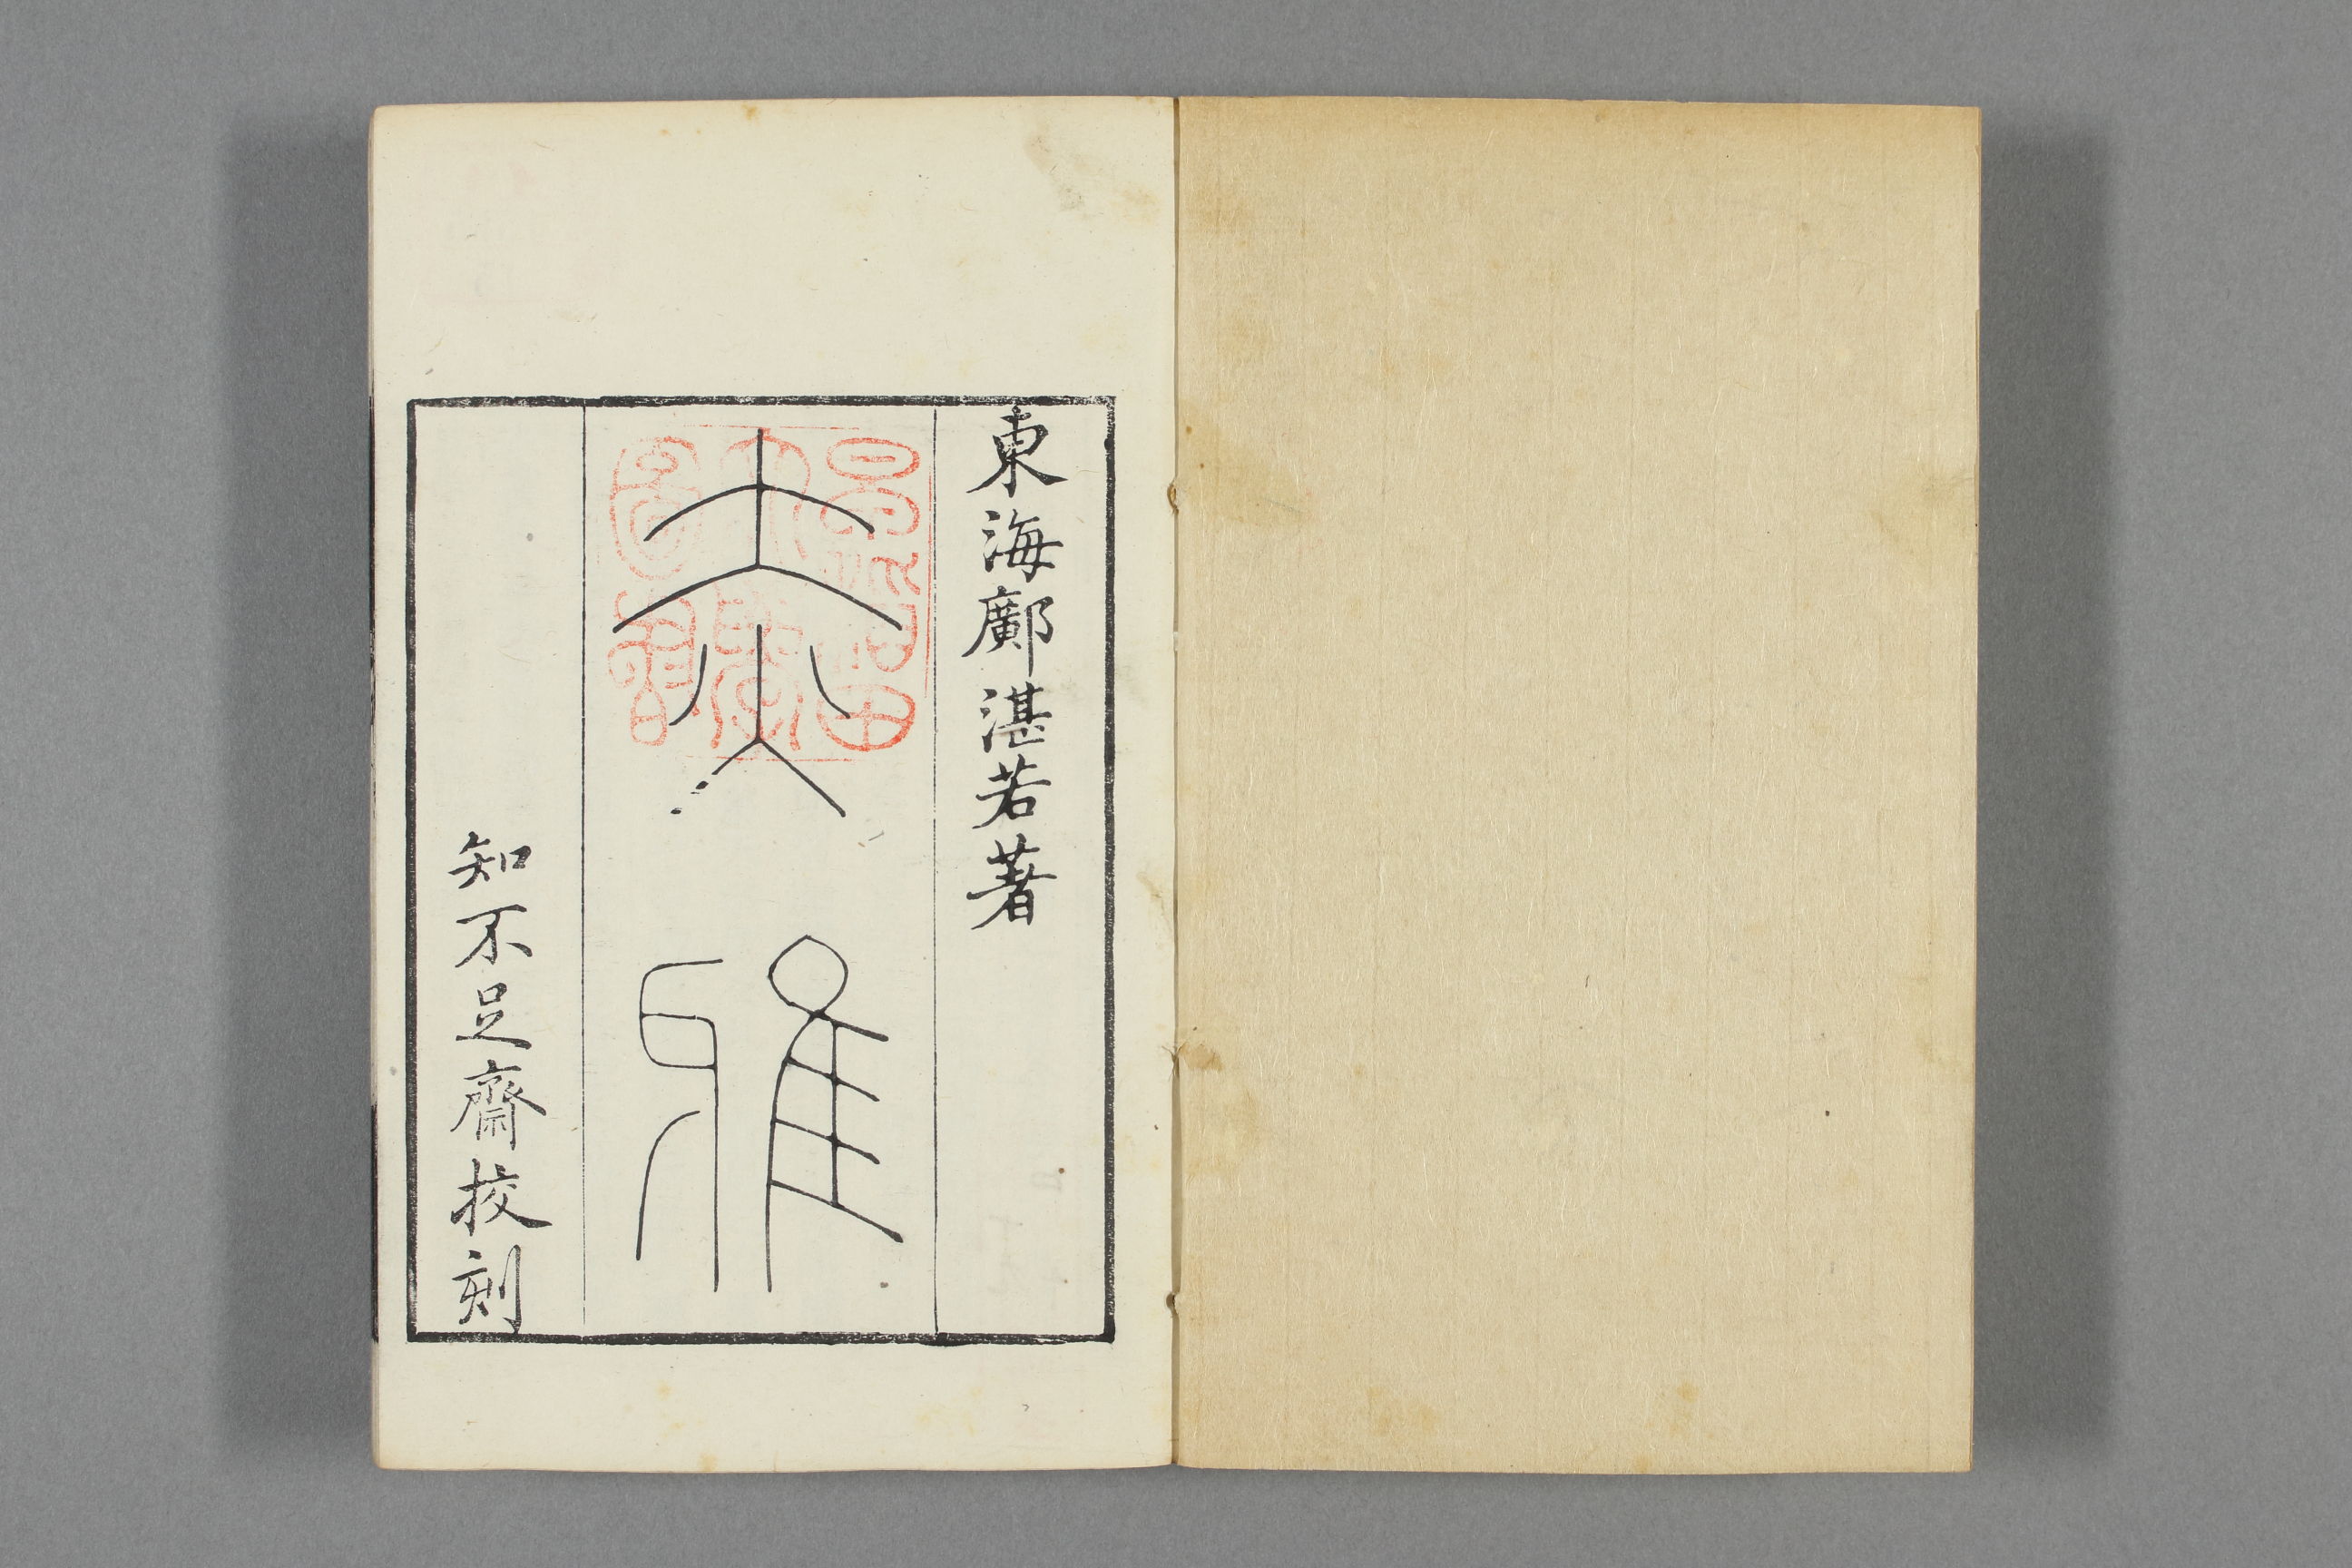 東海鄺湛若著
赤雅
知不足齋挍刻